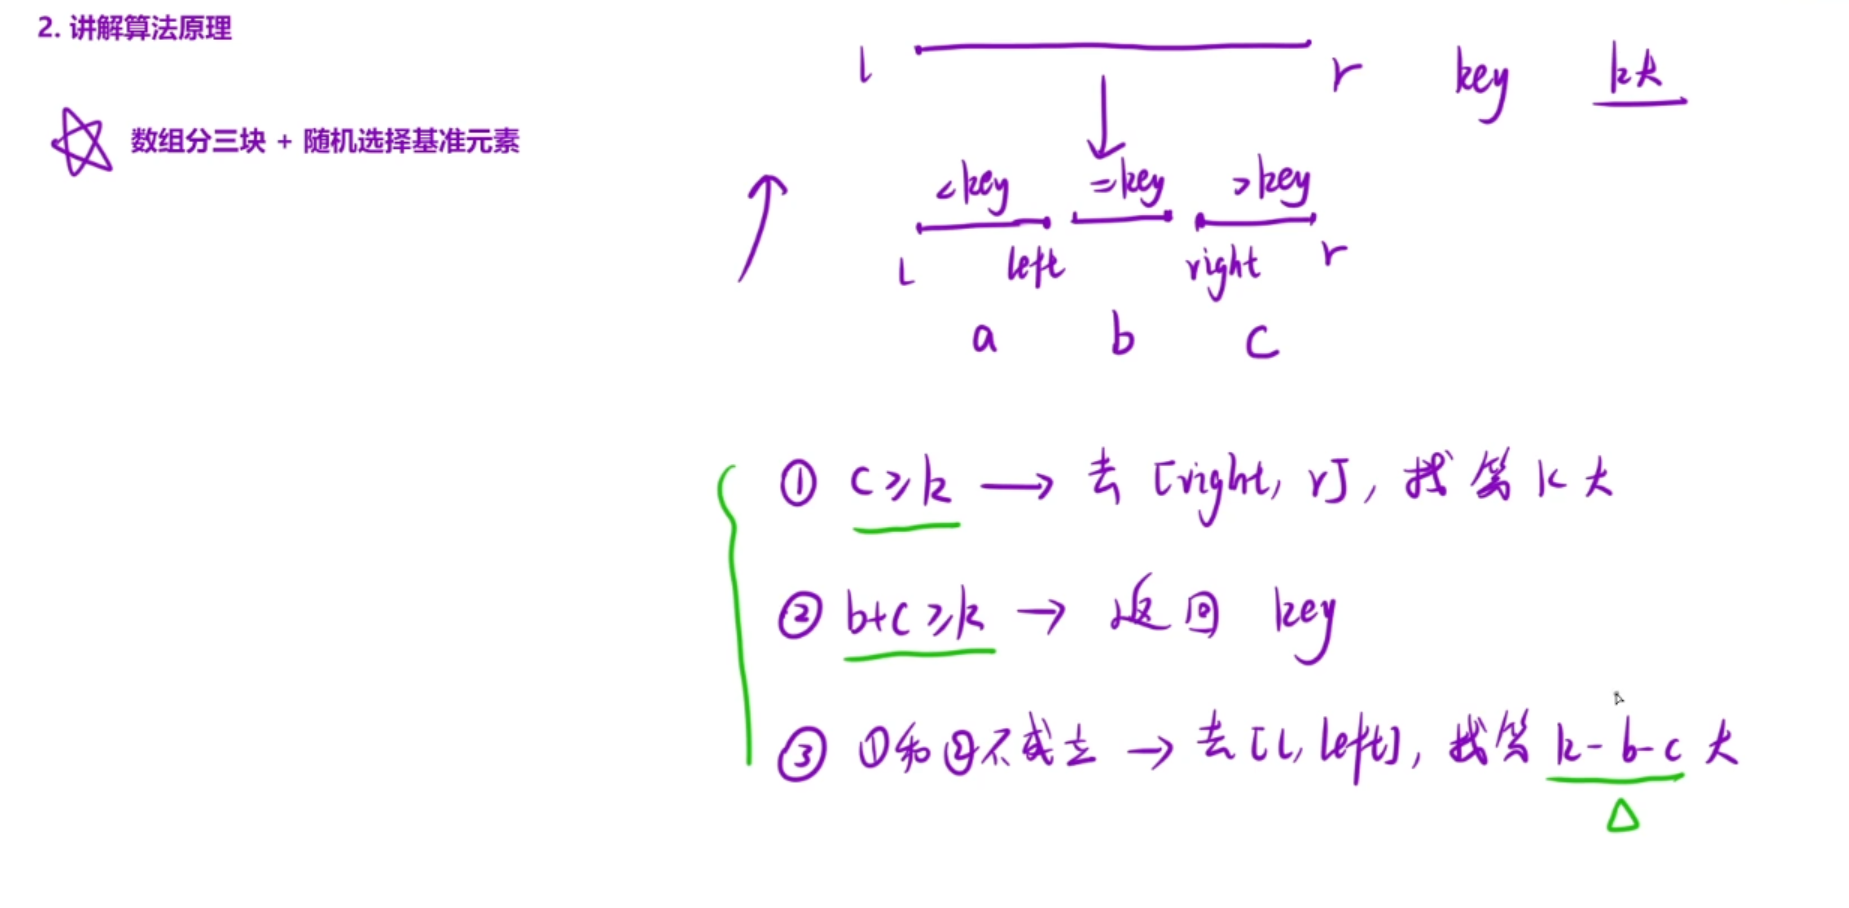 2. 讲解算法原理
l r key k大
数组分三块 + 随机选择基准元素
<key =key >key
l left right r
a b c
① c≥k → 去 [right, r], 找第 k 大
② b+c≥k → 返回 key
③ ①和②不成立 → 去[l, left], 找第 k-b-c 大